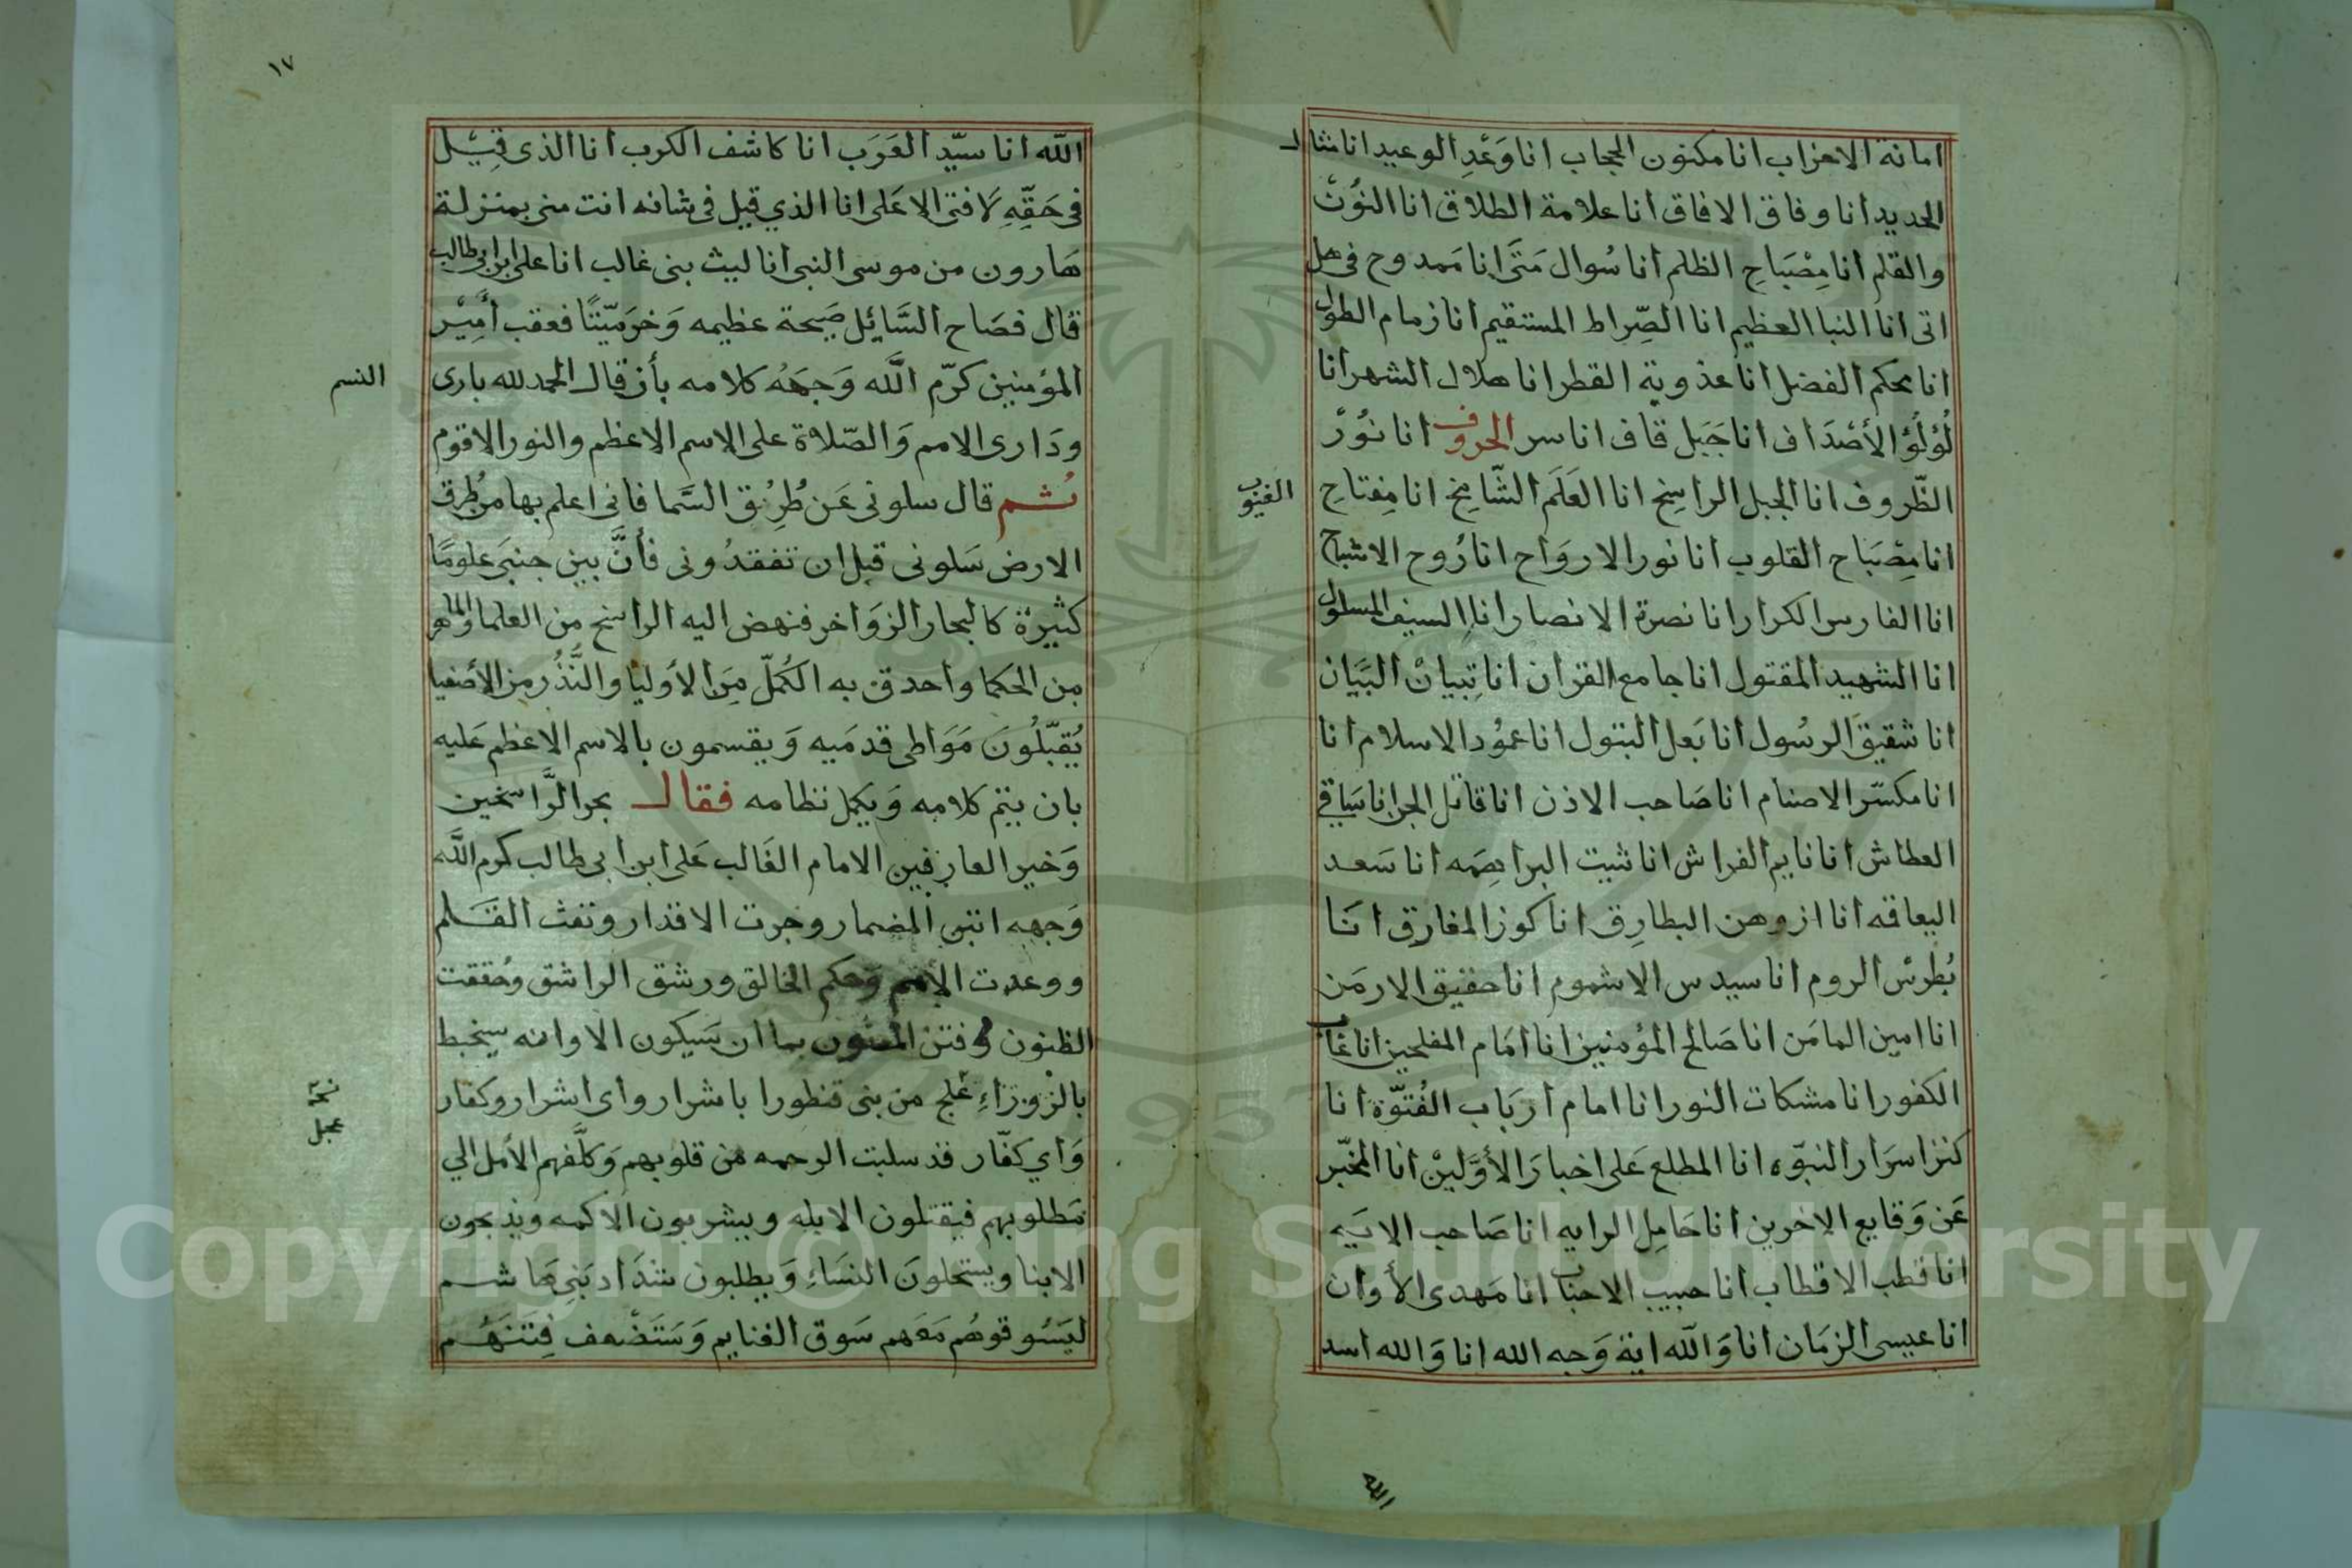 امانة الاحزاب انا مكنون الحجاب انا وَعْدِ الوعيد انا مثال
الحديد انا وفاق الافاق انا علامة الطلاق انا النُوْن
والقلم انا مِصْبَاحِ الظلم انا سُوال مَتَى انا مَمدوح فى هل
اتى انا النبا العظيم انا الصِّراط المستقيم انا زمام الطول
انا محكم الفضل انا عذوبة القطر انا هلال الشهر انا
لُؤلُؤ الأصْدَاف انا جَبَل قاف انا سر الحروف انا نوُرْ
الظّروف انا الجبل الراسِخ انا العَلَم الشّامخ انا مِفتاحِ
الغيوب
انا مِصْبَاح القلوب انا نور الارواح انا رُوح الاشباح
انا الفارس الكرار انا نصرة الانصار انا السيف المسلول
انا الشهيد المقتول انا جامع القران انا تِبيانْ البَيَان
انا شقيق الرسُول انا بَعل البتول انا عمُود الاسلام انا
انا مكسّر الاصنام انا صَاحب الاذن انا قاتل الجن انا سَاقي
العطاش انا نايم الفراش انا ثبيت البراهمه انا سَعد
اليعاقه انا ازوهن البطارِق انا كوز المفارق انا
بُطرس الروم انا سيدس الاشموم انا حقيق الارمَن
انا امين المامَن انا صَالح المؤمنين انا امَام المفلحين انا
الكفور انا مشكات النور انا امام اربَاب الفُتوّة انا
كنز اسرَار النبوّه انا المطلع عَلى اخبارَ الأوّلينْ انا المخبّر
عَن وَقايع الاخرين انا حَامِل الرايه انا صَاحب الايَه
انا قطب الاقطاب انا حبيب الاحباب انا مَهدى الأوان
انا عيسى الزمَان انا وَالله اية وَجه الله انا وَالله اسد
الله
١٧
الله انا سيّد العَرَب انا كاشف الكرب انا الذى قِيْل
فى حَقّهِ لَا فتى الا عَلى انا الذي قيل فى شانه انت منى بمنزلة
هَارون من موسى النبى انا ليث بنى غالب انا على ابن ابى طالب
قال فصَاح السَّائِل صَيحة عظيمه وَخرمَيّتًا فعقب أمِيْر
المؤمنين كرّم الله وَجهَهُ كلامه بأن قال الحمد لله بارى
النسم
وذَارى الامم وَالصّلاة على الاسم الاعظم والنور الاقوم
ثُم قال سلونى عَن طُرِق السَّما فانى اعلم بها من طُرِق
الارض سَلونى قبل ان تفقدُونى فأنَّ بين جنبَى علومًا
كثيرة كالبحار الزوَاخر فنهض اليه الراسخ من العلما والماهر
مِن الحكما وأحدق به الكُملّ مِنَ الأوليَا والنَّذُر من الأصْفيا
يُقبّلُونَ مَوَاطى قدمَيه وَيقسمون بالاسم الاعظم عَليه
بان يتم كلامه وَيكمل نظامه فقال بحر الرَّاسخين
وَخير العارفين الامام الغَالب عَلى ابن ابى طالب كرم الله
وَجهه انتبى المضمار وجرت الاقدار ونفث القَلم
ووعدت الأمم وَحكم الخالق ورشق الراشق وحُققت
الظنون وفتن المفتون بما ان سَيكون الا وانه سيخبط
بالزوزاءِ عَلج من بنى قنطورا باشرار واى اشرار وكفار
وَأي كفّار قد سلبت الرحمه من قلوبهم وَكلَّفهم الأمل الي
مَطلوبهم فيقتلون الايله ويشربون الاكمه ويذبحون
الابنا ويستحلونَ النسَاءِ وَيطلبون شدَاد بَنِى هَاشم
ليَسُوقوهُم مَعهم سَوق الغنايم وَسَتَضْعف فِتنَهُم
Copyright © King Saud University